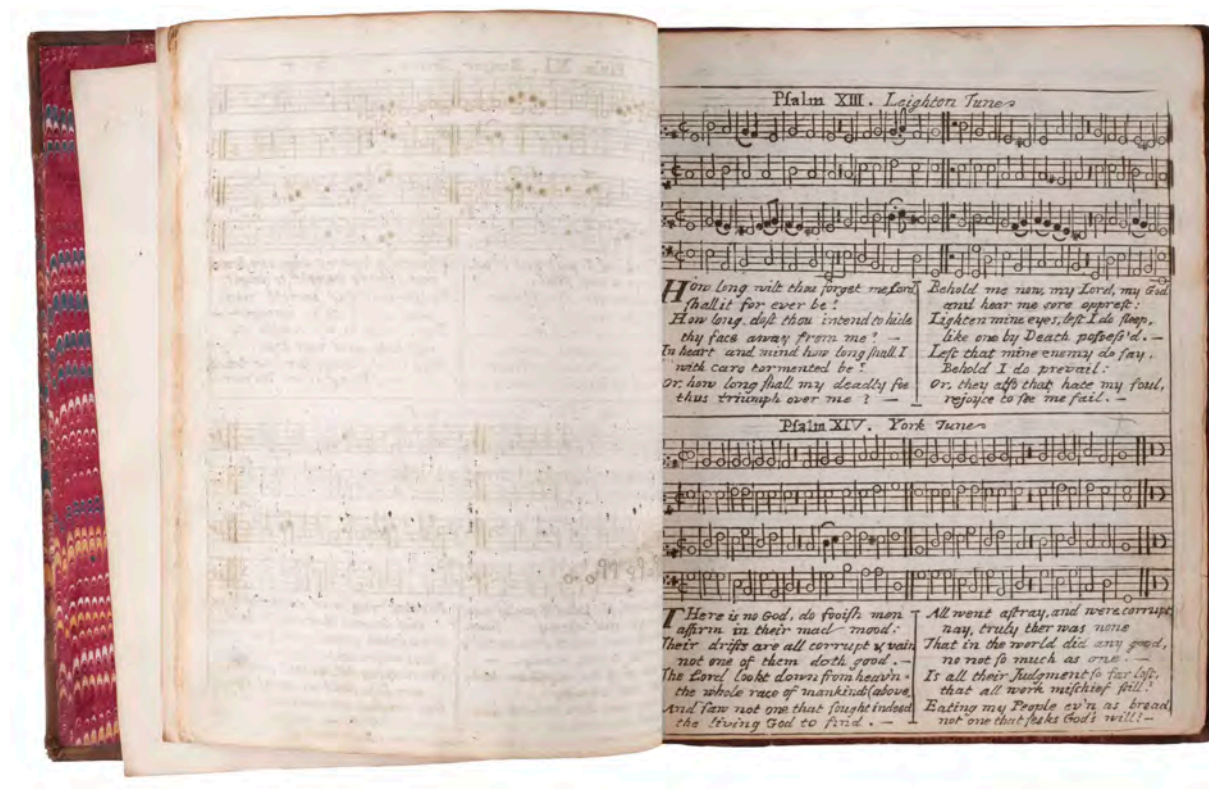 Pſalm XIII. Leighton Tune
How long wilt thou forget me Lord,
ſhall it for ever be?
How long doſt thou intend to hide
thy face away from me? —
In heart and mind how long ſhall I
with care tormented be?
Or, how long ſhall my deadly foe
thus triumph over me? —
Behold me now, my Lord, my God
and hear me sore oppreſt:
Lighten mine eyes, leſt I do ſleep,
like one by Death poſſeſs'd. —
Leſt that mine enemy do ſay,
Behold I do prevail:
Or, they alſo that hate my ſoul,
rejoyce to ſee me fail. —
Pſalm XIV. York Tune
THere is no God, do fooiſh men
affirm in their mad mood:
Their drifts are all corrupt & vain
not one of them doth good. —
The Lord lookt down from heav'n
the whole race of mankind (above,
And ſaw not one that ſought indeed
the living God to find. —
All went aſtray, and were corrupt,
nay, truly ther was none
That in the world did any good,
no not ſo much as one. —
Is all their Judgment ſo far loſt,
that all work miſchief ſtill?
Eating my People ev'n as bread
not one that ſeeks God's will? —